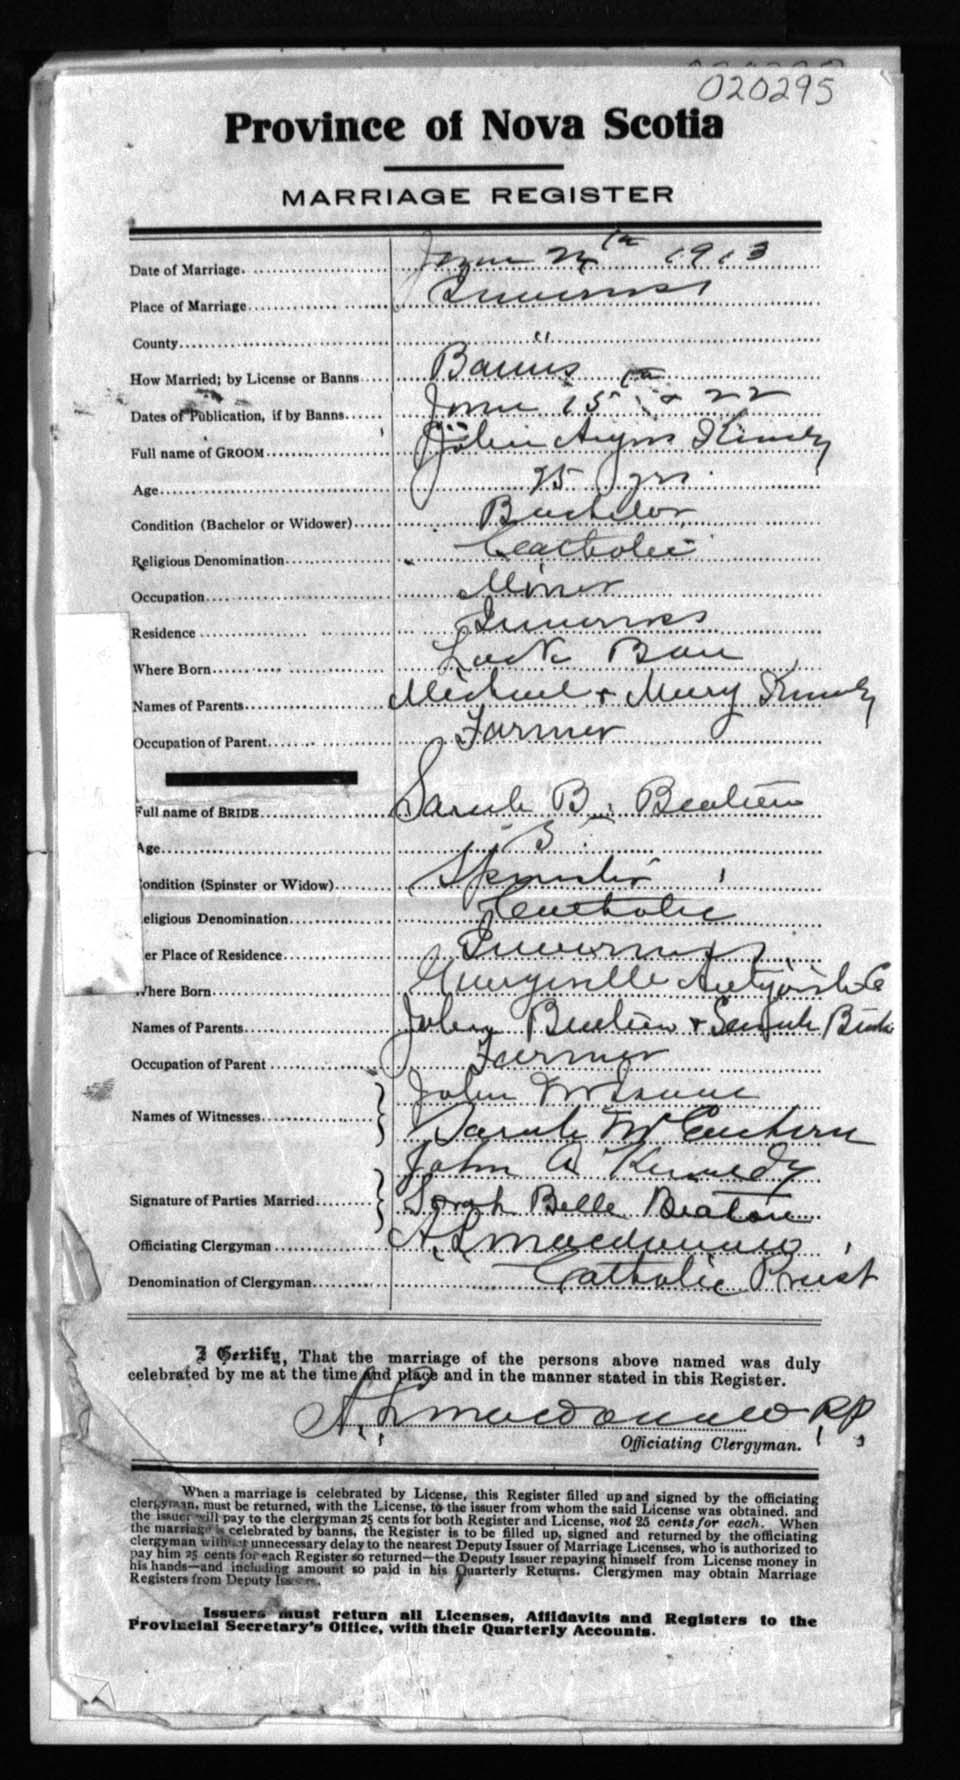 020295
Province of Nova Scotia
MARRIAGE REGISTER
Date of Marriage June 24th 1913
Place of Marriage Inverness
County "
How Married; by License or Banns Banns
Dates of Publication, if by Banns June 15th & 22
Full name of GROOM John Angus Kennedy
Age 25 yrs
Condition (Bachelor or Widower) Bachelor
Religious Denomination Catholic
Occupation Miner
Residence Inverness
Where Born Lock Ban
Names of Parents Michael & Mary Kennedy
Occupation of Parent Farmer
Full name of BRIDE Sarah B. Beaton
Age
Condition (Spinster or Widow) Spinster
Religious Denomination Catholic
Her Place of Residence Inverness
Where Born Georgeville Antigonish Co
Names of Parents John Beaton & Sarah
Occupation of Parent Farmer
Names of Witnesses John McIsaac
Sarah McEachern
Signature of Parties Married John A Kennedy
Sarah Belle Beaton
Officiating Clergyman A. L. Macdonald
Denomination of Clergyman Catholic Priest
I Certify, That the marriage of the persons above named was duly
celebrated by me at the time and place and in the manner stated in this Register.
A. L. Macdonald P.P.
Officiating Clergyman.
When a marriage is celebrated by License, this Register filled up and signed by the officiating
clergyman, must be returned, with the License, to the issuer from whom the said License was obtained, and
the issuer will pay to the clergyman 25 cents for both Register and License, not 25 cents for each. When
the marriage is celebrated by banns, the Register is to be filled up, signed and returned by the officiating
clergyman without unnecessary delay to the nearest Deputy Issuer of Marriage Licenses, who is authorized to
pay him 25 cents for each Register so returned—the Deputy Issuer repaying himself from License money in
his hands—and including amount so paid in his Quarterly Returns. Clergymen may obtain Marriage
Registers from Deputy Issuers.
Issuers must return all Licenses, Affidavits and Registers to the
Provincial Secretary's Office, with their Quarterly Accounts.